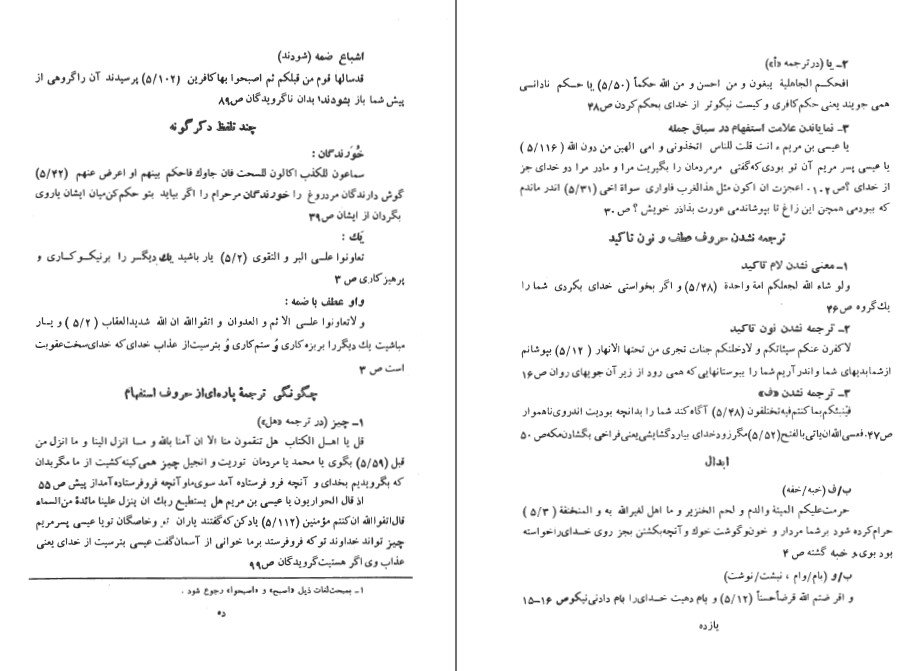 اشباع ضمه (شودند)
قدسالها قوم من قبلكم ثم اصبحوا بهاكافرین (۵/۱۰۲) پرسیدند آن راگروهی از
پیش شما باز بشودند¹ بدان ناگرویدگان ص۸۹
چند تلفظ دگرگونه
خُورَندگان :
سماعون للكذب اكالون للسحت فان جاوك فاحكم بینهم او اعرض عنهم (۵/۴۲)
گوش دارندگان مردروغ را خورندگان مرحرام را اگر بیاید بتو حكم‌كن‌میان ایشان یاروی
بگردان از ایشان ص۳۹
یَك :
تعاونوا علـی البر و التقوی (۵/۲) یار باشید یك دیگـر را برنیكوکـاری و
پرهیزکاری ص ۳
واو عطف باضمه :
و لاتعاونوا علـی الاثم و العدوان و اتقواالله ان الله شدیدالعقاب (۵/۲) و یـار
مباشیت یك دیگررا بربزه‌کاری وُ ستم‌کاری وُ بترسیت‌از عذاب خدای‌که خدای‌سخت‌عقوبت
است ص ۳
چگونگی ترجمهٔ پاره‌ای‌از حروف استفهام
۱ـ چیز (در ترجمه «هل»)
قل یا اهـل الكتاب هل تنقمون منا الا ان آمنا بالله و مـا انزل الینا و ما انزل من
قبل (۵/۵۹) بگوی یا محمد یا مردمان توریت و انجیل چیز همی‌کینه‌کشیت از ما مگربدان
که بگرویدیم بخدای و آنچه فرو فرستاده آمد سوی‌ماو آنچه فروفرستاده‌آمداز پیش ص ۵۵
اذ قال الحواریون یا عیسی بن مریم هل یستطیع ربك ان ینزل علینا مائدة من‌السماء
قال‌اتقواالله ان‌كنتم مؤمنین (۵/۱۱۲) یادکن‌که‌گفتند یاران تو وخاصگان تویا عیسی پسرمریم
چیز تواند خداوند توکه فروفرستد برما خوانی از آسمان‌گفت عیسی بترسیت از خدای یعنی
عذاب وی اگر هستیت‌گرویدگان ص۹۹
۱ـ بمبحث‌لغات ذیل «اصبح» و «اصبحوا» رجوع شود .
ده
۲ـ یا (درترجمه «أ»)
افحكـم الجاهلیة یبغون و من احسن و من الله حكماً (۵/۵۰) یا حـكم نادانسی
همی جویند یعنی حکم‌کافری و کیست نیکوتر از خدای بحکم‌کردن ص۴۸
۳ـ نمایاندن علامت استفهام در سیاق جمله
یا عیسی بن مریم ء انت قلت للناس اتخذونی و امی الهین من دون الله (۵/۱۱۶)
یا عیسی پسر مریم آن تو بودی‌که‌گفتی مرمردمان را بگیریت مرا و مادر مرا دو خدای جز
از خدای ؟ص۱۰۲. اعجزت ان اكون مثل هذاالغرب فاواری سواة اخی (۵/۳۱) اندر ماندم
که ببودمی همچن این زاغ تا بپوشاندمی عورت بذاذر خویش ؟ ص۳۰
ترجمه نشدن حروف عطف و نون تاکید
۱ـ معنی نشدن لام تاکید
ولو شاء الله لجعلكم امة واحدة (۵/۴۸) و اگر بخواستی خدای بکردی شما را
یك‌گروه ص۴۶
۲ـ ترجمه نشدن نون تاکید
لاكفرن عنكم سیئاتكم و لادخلنكم جنات تجری من تحتها الانهار (۵/۱۲) بپوشانم
ازشمابدیهای شما واندرآریم شما را ببوستانهایی که همی رود از زیر آن جویهای روان ص۱۶
۳ـ ترجمه نشدن «ف»
فینبئكم بماكنتم‌فیه‌تختلفون (۵/۴۸) آگاه‌کند شما را بدانچه بودیت اندروی‌ناهموار
ص۴۷. فعسی‌الله‌ان‌یاتی‌بالفتح(۵/۵۲)مگرزودخدای بیاردگشایشی‌یعنی‌فراخی بگشادن‌مکه‌ص۵۰
ابدال
ب/ف (خبه/خفه)
حرمت‌علیكم المیتة والدم و لحم الخنزیر و ما اهل لغیرالله به و المنخنقة (۵/۳)
حرام‌کرده شود برشما مردار و خون‌وگوشت خوك وآنچه‌بکشتن بجز روی خدای‌راخواسته
بود بوی و خبه گشته ص ۴
ب/و (بام/وام ، نبشت/نوشت)
و اقرضتم الله قرضاًحسناً (۵/۱۲) و بام دهیت خـدای‌را بام دادنی‌نیکوص ۱۶ـ۱۵
یازده